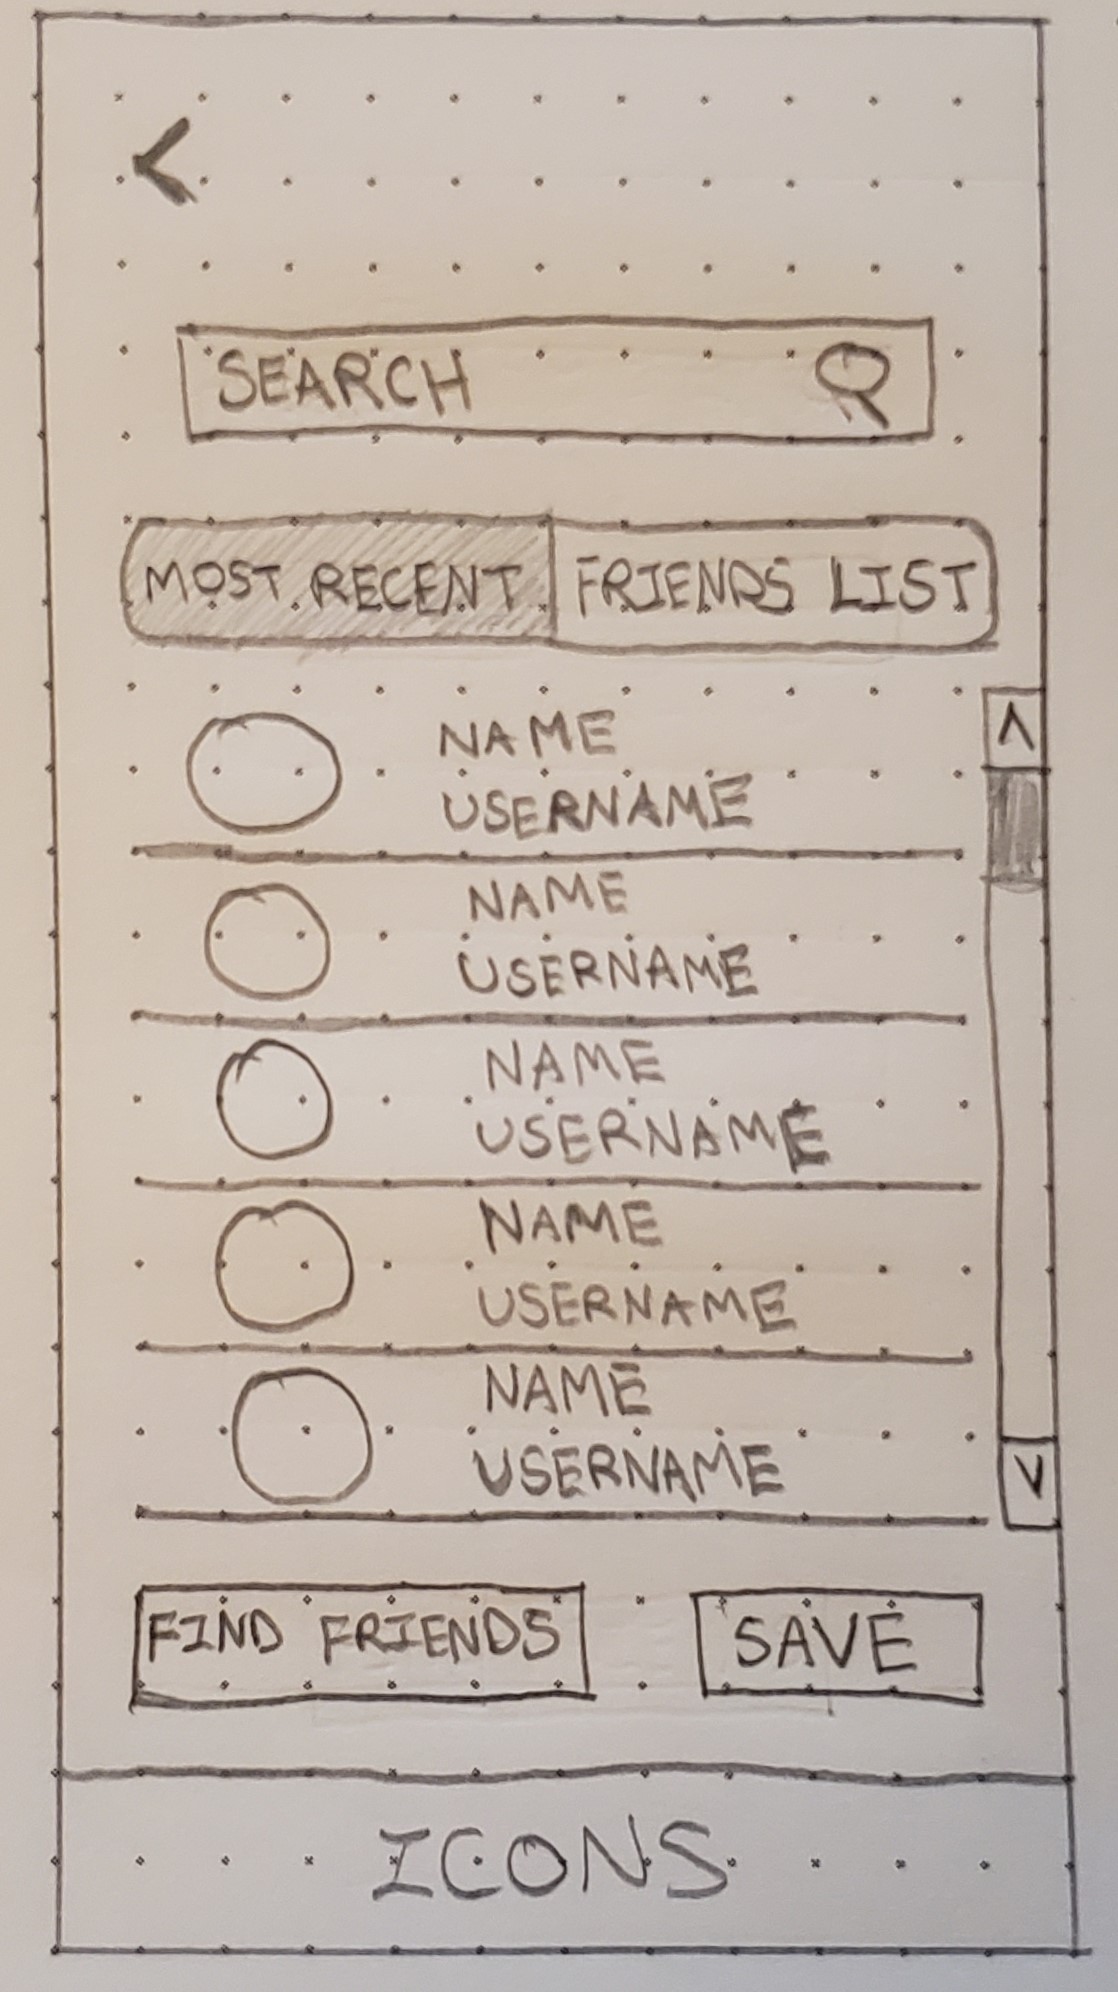 <
SEARCH
MOST RECENT FRIENDS LIST
NAME
USERNAME
NAME
USERNAME
NAME
USERNAME
NAME
USERNAME
NAME
USERNAME
FIND FRIENDS SAVE
ICONS